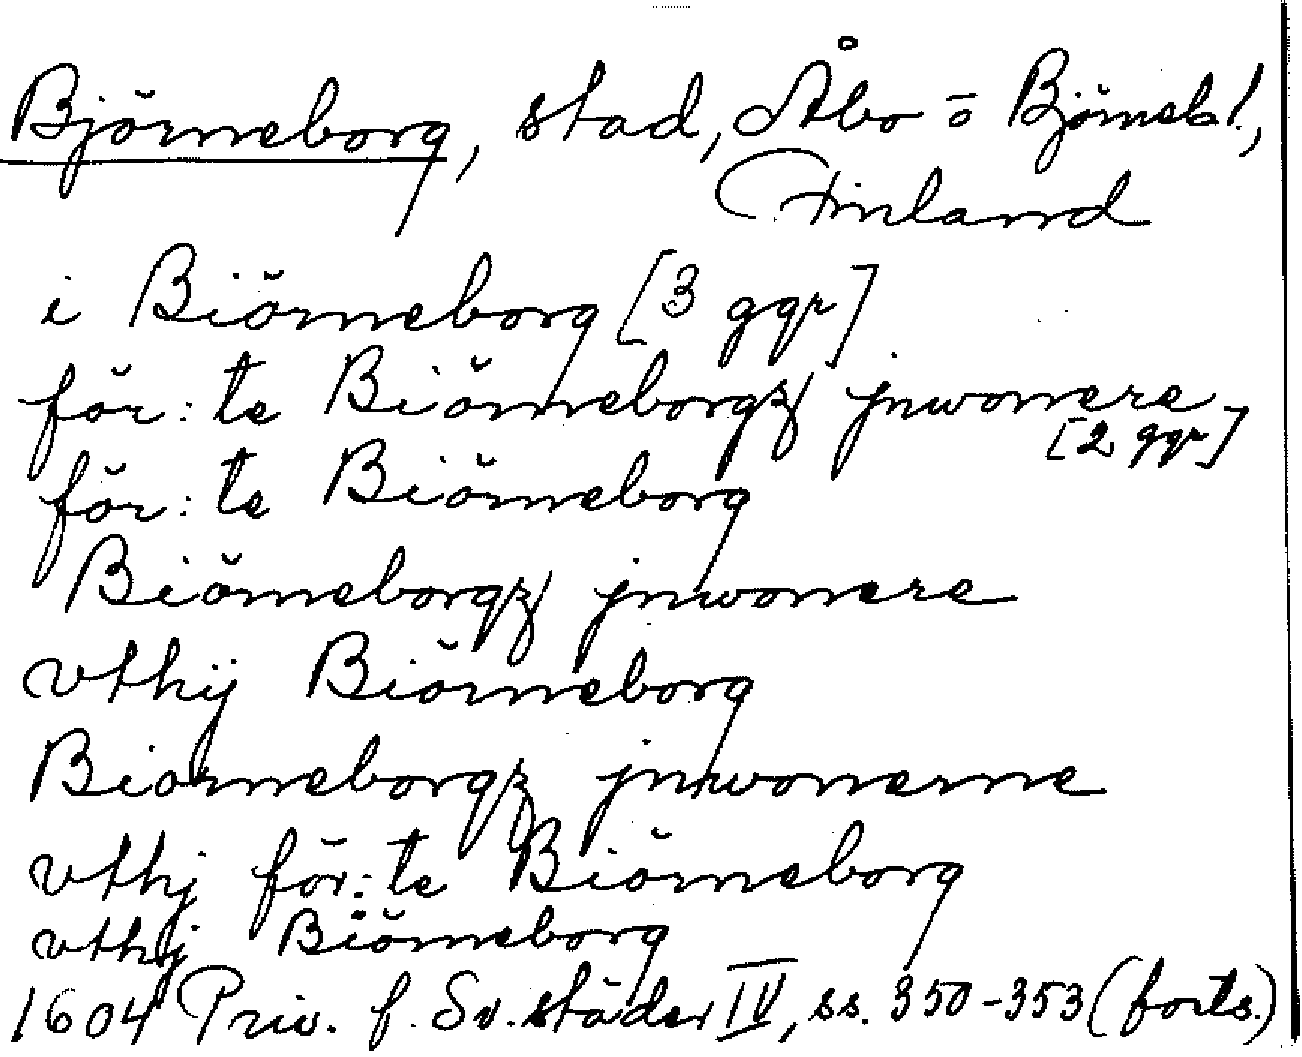 Björneborg, stad, Åbo o Björnebl.,
Finland
i Biörneborg [3 ggr]
för: te Biörneborgz jnwonere
[2 ggr]
för: te Biörneborg
Biörneborgz jnwonere
vthij Biörneborg
Biorneborgz jnwonerne
vthj för: te Biörneborg
vthj Biörneborg
1604 Priv. f. Sv. städer IV, ss. 350-353 (forts.)